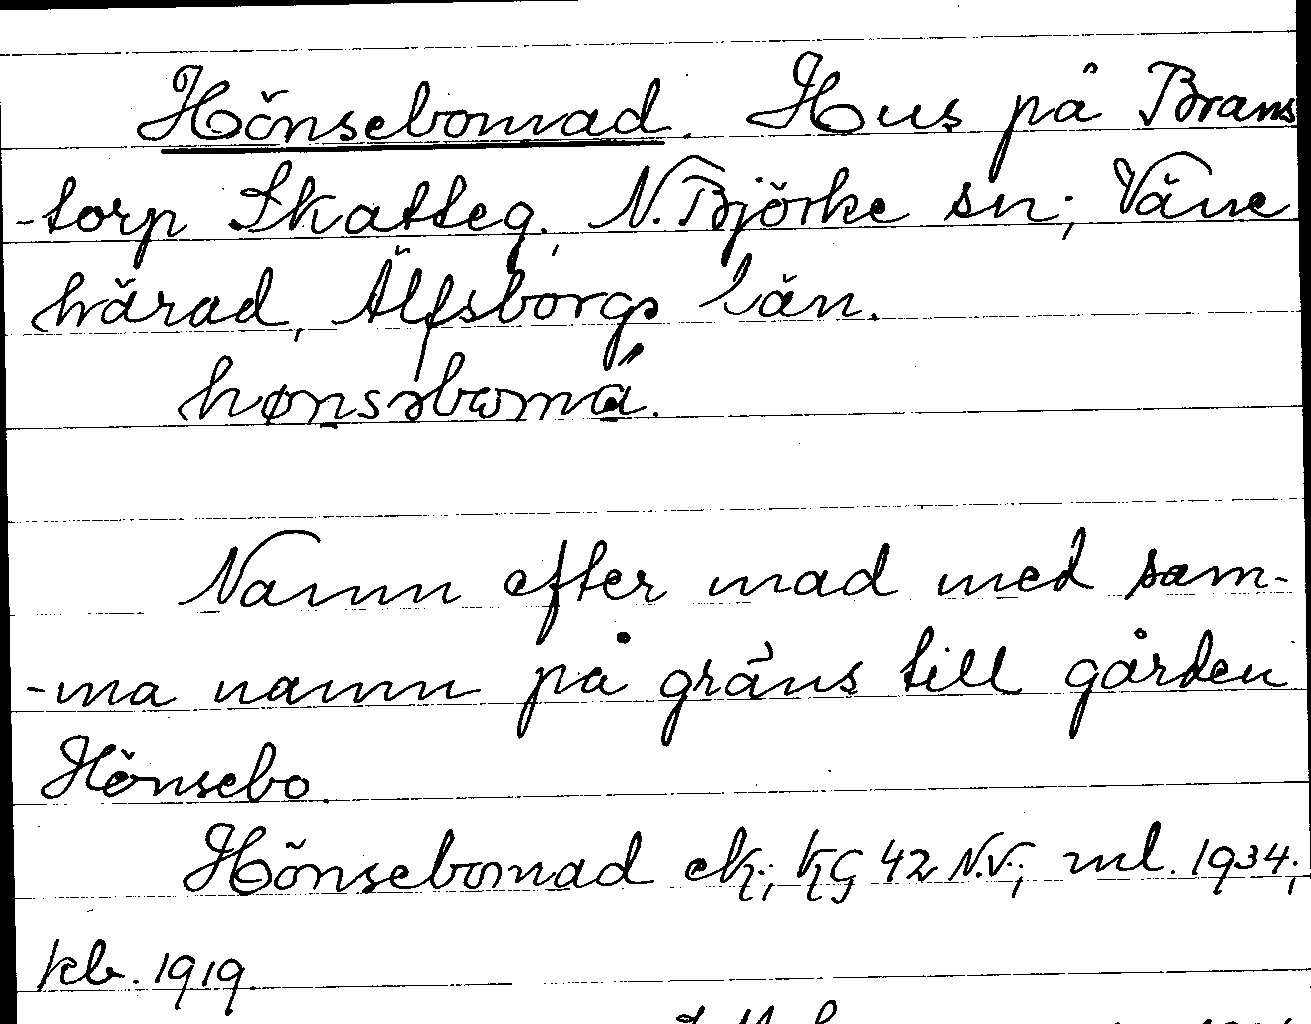 Hönsebomad. Hus på Brams
-torp Skatteg., N. Björke sn; Väne
härad, Älfsborgs län.
hønsəbomá.
Namn efter mad med sam-
-ma namn på gräns till gården
Hönsebo.
Hönsebomad ek; KG 42 N.V.; ml. 1934;
kb. 1919.